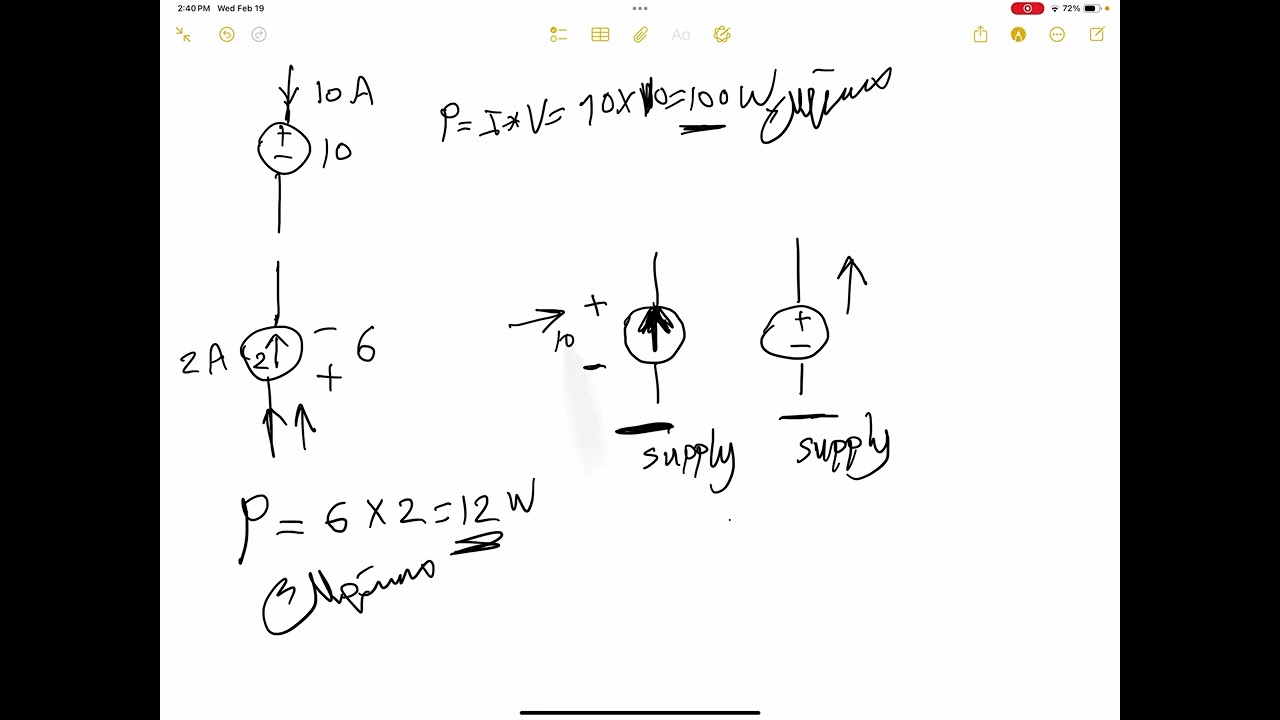 2:40 PM Wed Feb 19
72%
Aa
10 A
+
−
10
P = I * V = 10 X 10 = 100 W
2 A
2
− 6
+
10
+
−
supply
+
−
supply
P = 6 X 2 = 12 W